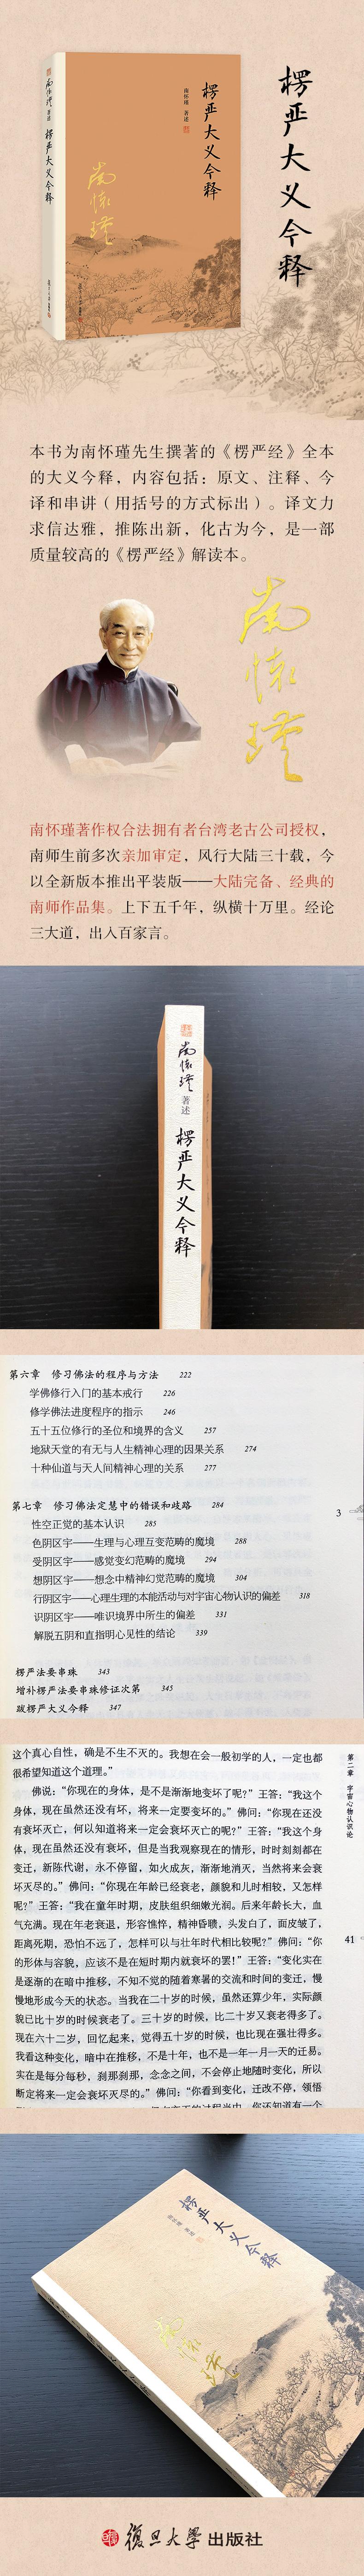 南怀瑾 著述
楞严大义今释
南怀瑾 著述
楞严大义今释
南怀瑾
楞严大义今释
本书为南怀瑾先生撰著的《楞严经》全本
的大义今释，内容包括：原文、注释、今
译和串讲（用括号的方式标出）。译文力
求信达雅，推陈出新，化古为今，是一部
质量较高的《楞严经》解读本。
南怀瑾
南怀瑾著作权合法拥有者台湾老古公司授权，
南师生前多次亲加审定，风行大陆三十载，今
以全新版本推出平装版——大陆完备、经典的
南师作品集。上下五千年，纵横十万里。经论
三大道，出入百家言。
南怀瑾
著述
楞严大义今释
第六章　修习佛法的程序与方法 222
学佛修行入门的基本戒行 226
修学佛法进度程序的指示 246
五十五位修行的圣位和境界的含义 257
地狱天堂的有无与人生精神心理的因果关系 274
十种仙道与天人间精神心理的关系 277
第七章　修习佛法定慧中的错误和歧路 284
性空正觉的基本认识 285
色阴区宇——生理与心理互变范畴的魔境 288
受阴区宇——感觉变幻范畴的魔境 294
想阴区宇——想念中精神幻觉范畴的魔境 304
行阴区宇——心理生理的本能活动与对宇宙心物认识的偏差 318
识阴区宇——唯识境界中所生的偏差 331
解脱五阴和直指明心见性的结论 339
楞严法要串珠 343
增补楞严法要串珠修证次第 345
跋楞严大义今释 347
3
这个真心自性，确是不生不灭的。我想在会一般初学的人，一定也都
很希望知道这个道理。”
佛说：“你现在的身体，是不是渐渐地变坏了呢？”王答：“我这个
身体，现在虽然还没有坏，将来一定要变坏的。”佛问：“你现在还没
有衰坏灭亡，何以知道将来一定会衰坏灭亡的呢？”王答：“我这个身
体，现在虽然没有衰坏，但是当我观察现在的情形，时时刻刻都在
变迁，新陈代谢，永不停留，如火成灰，渐渐地消灭，当然将来会衰
坏灭尽的。”佛问：“你现在年龄已经衰老，颜貌和儿时相较，又怎样
呢？”王答：“我在童年时期，皮肤组织细嫩光润。后来年龄长大，血
气充满。现在年老衰退，形容憔悴，精神昏聩，头发白了，面皮皱了，
距离死期，恐怕不远了，怎样可以与壮年时代相比较呢？”佛问：“你
的形体与容貌，应该不是在短时期内就衰坏的罢！”王答：“变化实在
是逐渐的在暗中推移，不知不觉的随着寒暑的交流和时间的变迁，慢
慢地形成今天的状态。当我在二十岁的时候，虽然还算少年，实际颜
貌已比十岁的时候衰老了。三十岁的时候，比二十岁又衰老得多了。
现在六十二岁，回忆起来，觉得五十岁的时候，也比现在强壮得多。
我看这种变化，暗中在推移，不是十年，也不是一年一月一天的迁易。
实在是每分每秒，刹那刹那，念念之间，不会停止地随时变化，所以
断定将来一定会衰坏灭尽的。”佛问：“你看到变化，迁改不停，领悟
第二章　宇宙心物认识论
41
楞严大义今释
南怀瑾 著述
南怀瑾
復旦大學出版社